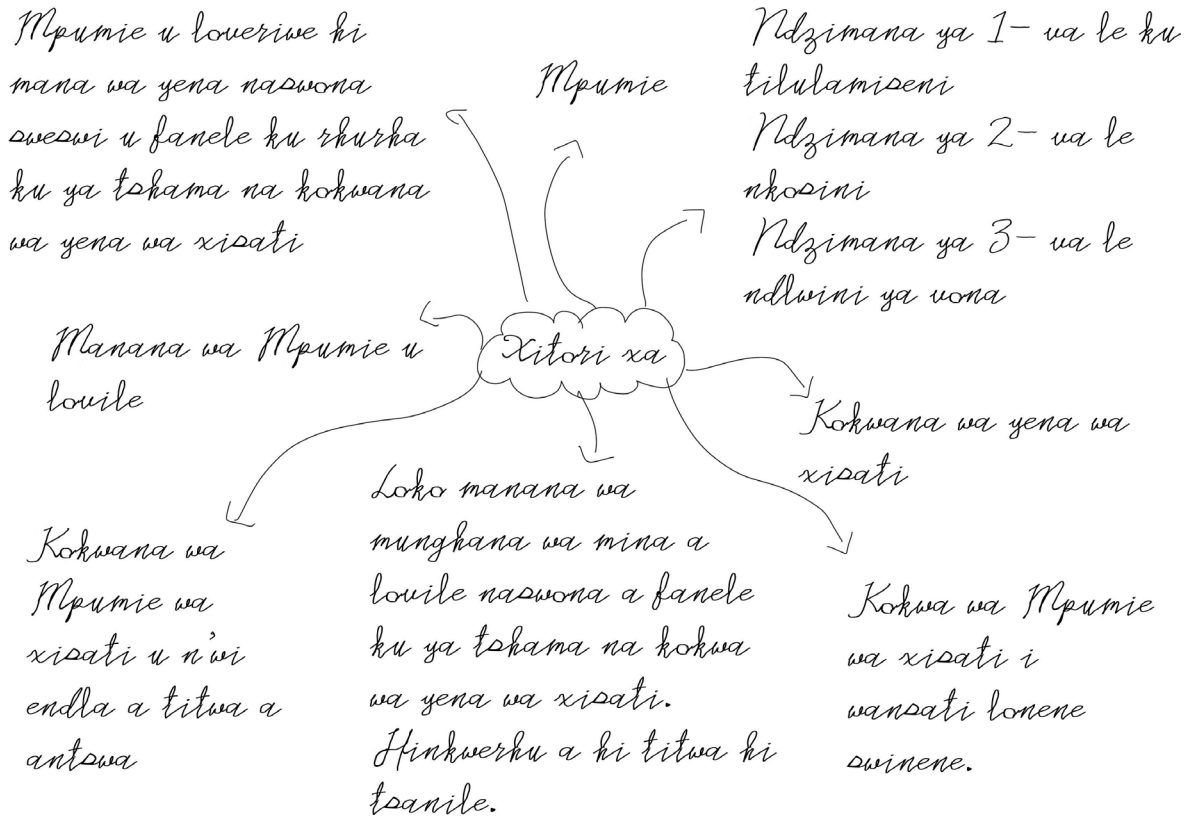 Mpumie u loveriwe hi
mana wa yena naswona
sweswi u fanele ku rhurha
ku ya tshama na kokwana
wa yena wa xisati
Mpumie
Ndzimana ya 1- va le ku
tilulamiseni
Ndzimana ya 2- va le
nkosini
Ndzimana ya 3- va le
ndlwini ya vona
Manana wa Mpumie u
lovile
Xitori xa
Kokwana wa yena wa
xisati
Kokwana wa
Mpumie wa
xisati u n'wi
endla a titwa a
antswa
Loko manana wa
munghana wa mina a
lovile naswona a fanele
ku ya tshama na kokwa
wa yena wa xisati.
Hinkwerhu a hi titwa hi
tsanile.
Kokwa wa Mpumie
wa xisati i
wansati lonene
swinene.